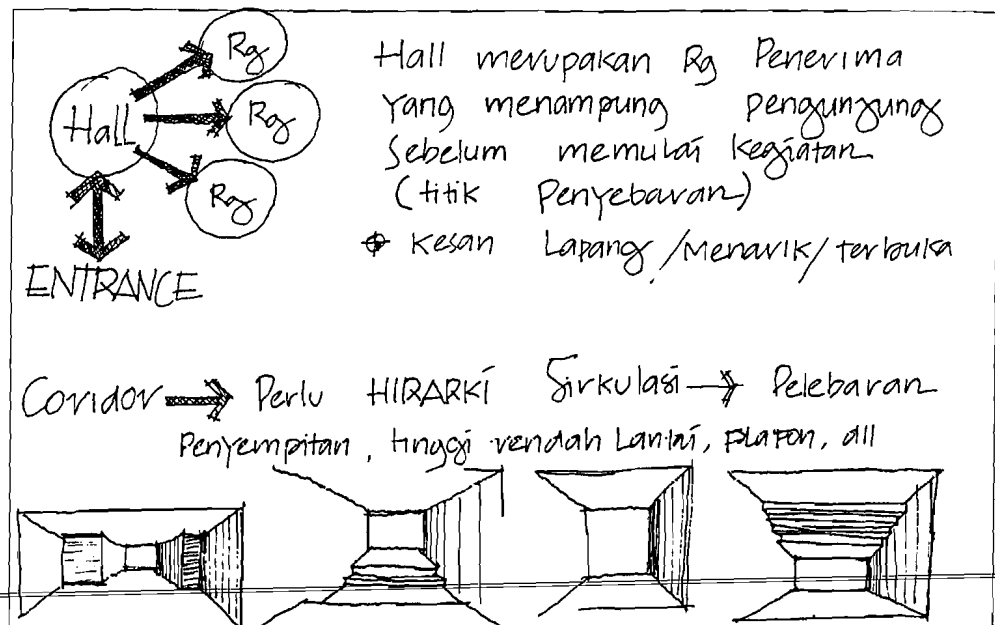 Rg
Hall
Rg
Rg
ENTRANCE
Hall merupakan Rg Penerima
yang menampung pengunjung
Sebelum memulai kegiatan
(titik Penyebaran)
Kesan Lapang/Menarik/terbuka
Corridor Perlu HIRARKI Sirkulasi Pelebaran
Penyempitan, tinggi rendah Lantai, plafon, dll